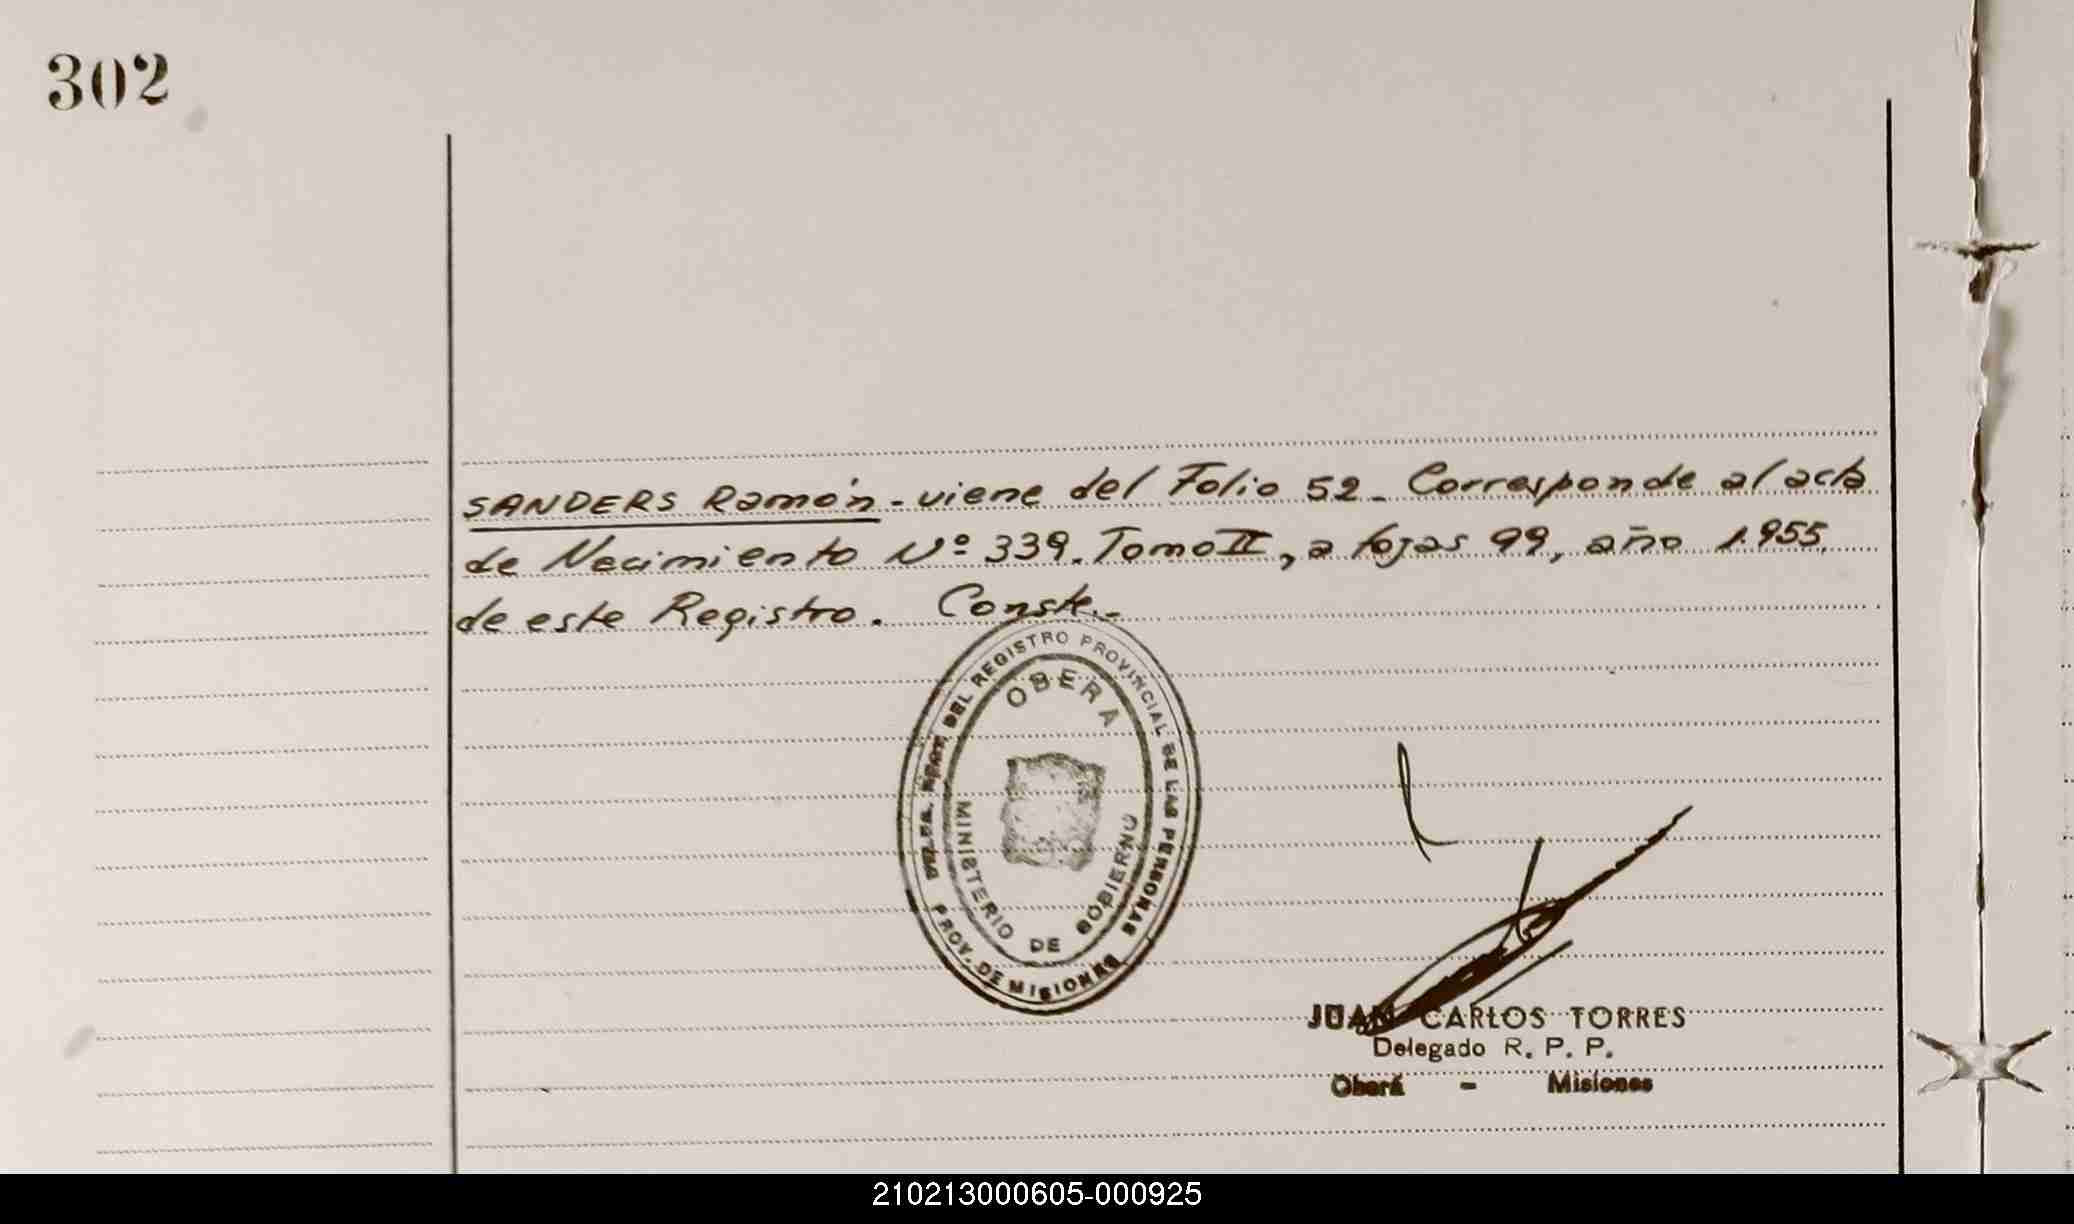 302
SANDERS Ramón - viene del Folio 52 - Corresponde al acta
de Nacimiento Nº 339. Tomo II, a fojas 99, año 1.955.
de este Registro. Conste.-
DEL REGISTRO PROVINCIAL DE LAS PERSONAS
PROV. DE MISIONES
OBERA
MINISTERIO DE GOBIERNO
JUAN CARLOS TORRES
Delegado R. P. P.
Oberá - Misiones
210213000605-000925